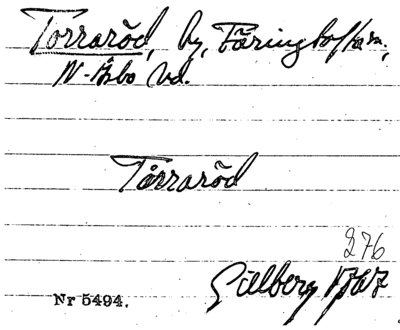 Torraröd, by, Färingtofta sn,
N-Åsbo hd.
Tårraröd
276
Gillberg 1767
Nr 5494.